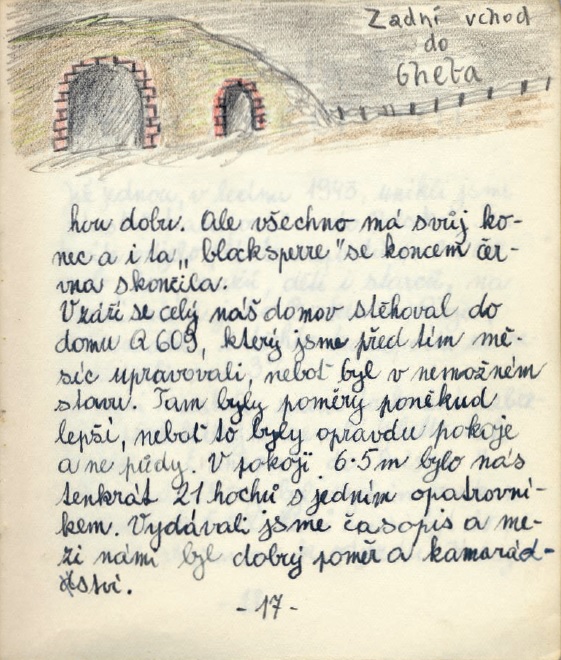 Zadní vchod
do
Gheta
hou dobu. Ale všechno má svůj ko-
nec a i ta „blocksperre" se koncem čer-
vna skončila.
V září se celý náš domov stěhoval do
domu Q 609, který jsme před tím mě-
síc upravovali, neboť byl v nemožném
stavu. Tam byly poměry poněkud
lepší, neboť to byly opravdu pokoje
a ne půdy. V pokoji 6·5 m bylo nás
tenkrát 21 hochů s jedním opatrovní-
kem. Vydávali jsme časopis a me-
zi námi byl dobrý poměr a kamarád-
ství.
-17-